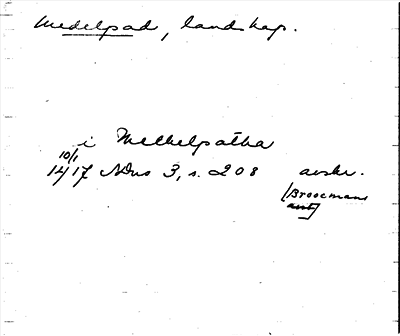 Medelpad, landskap.
i Methelpatha
10/1
1417 NDns 3, s. 208 avskr.
[Broocmans